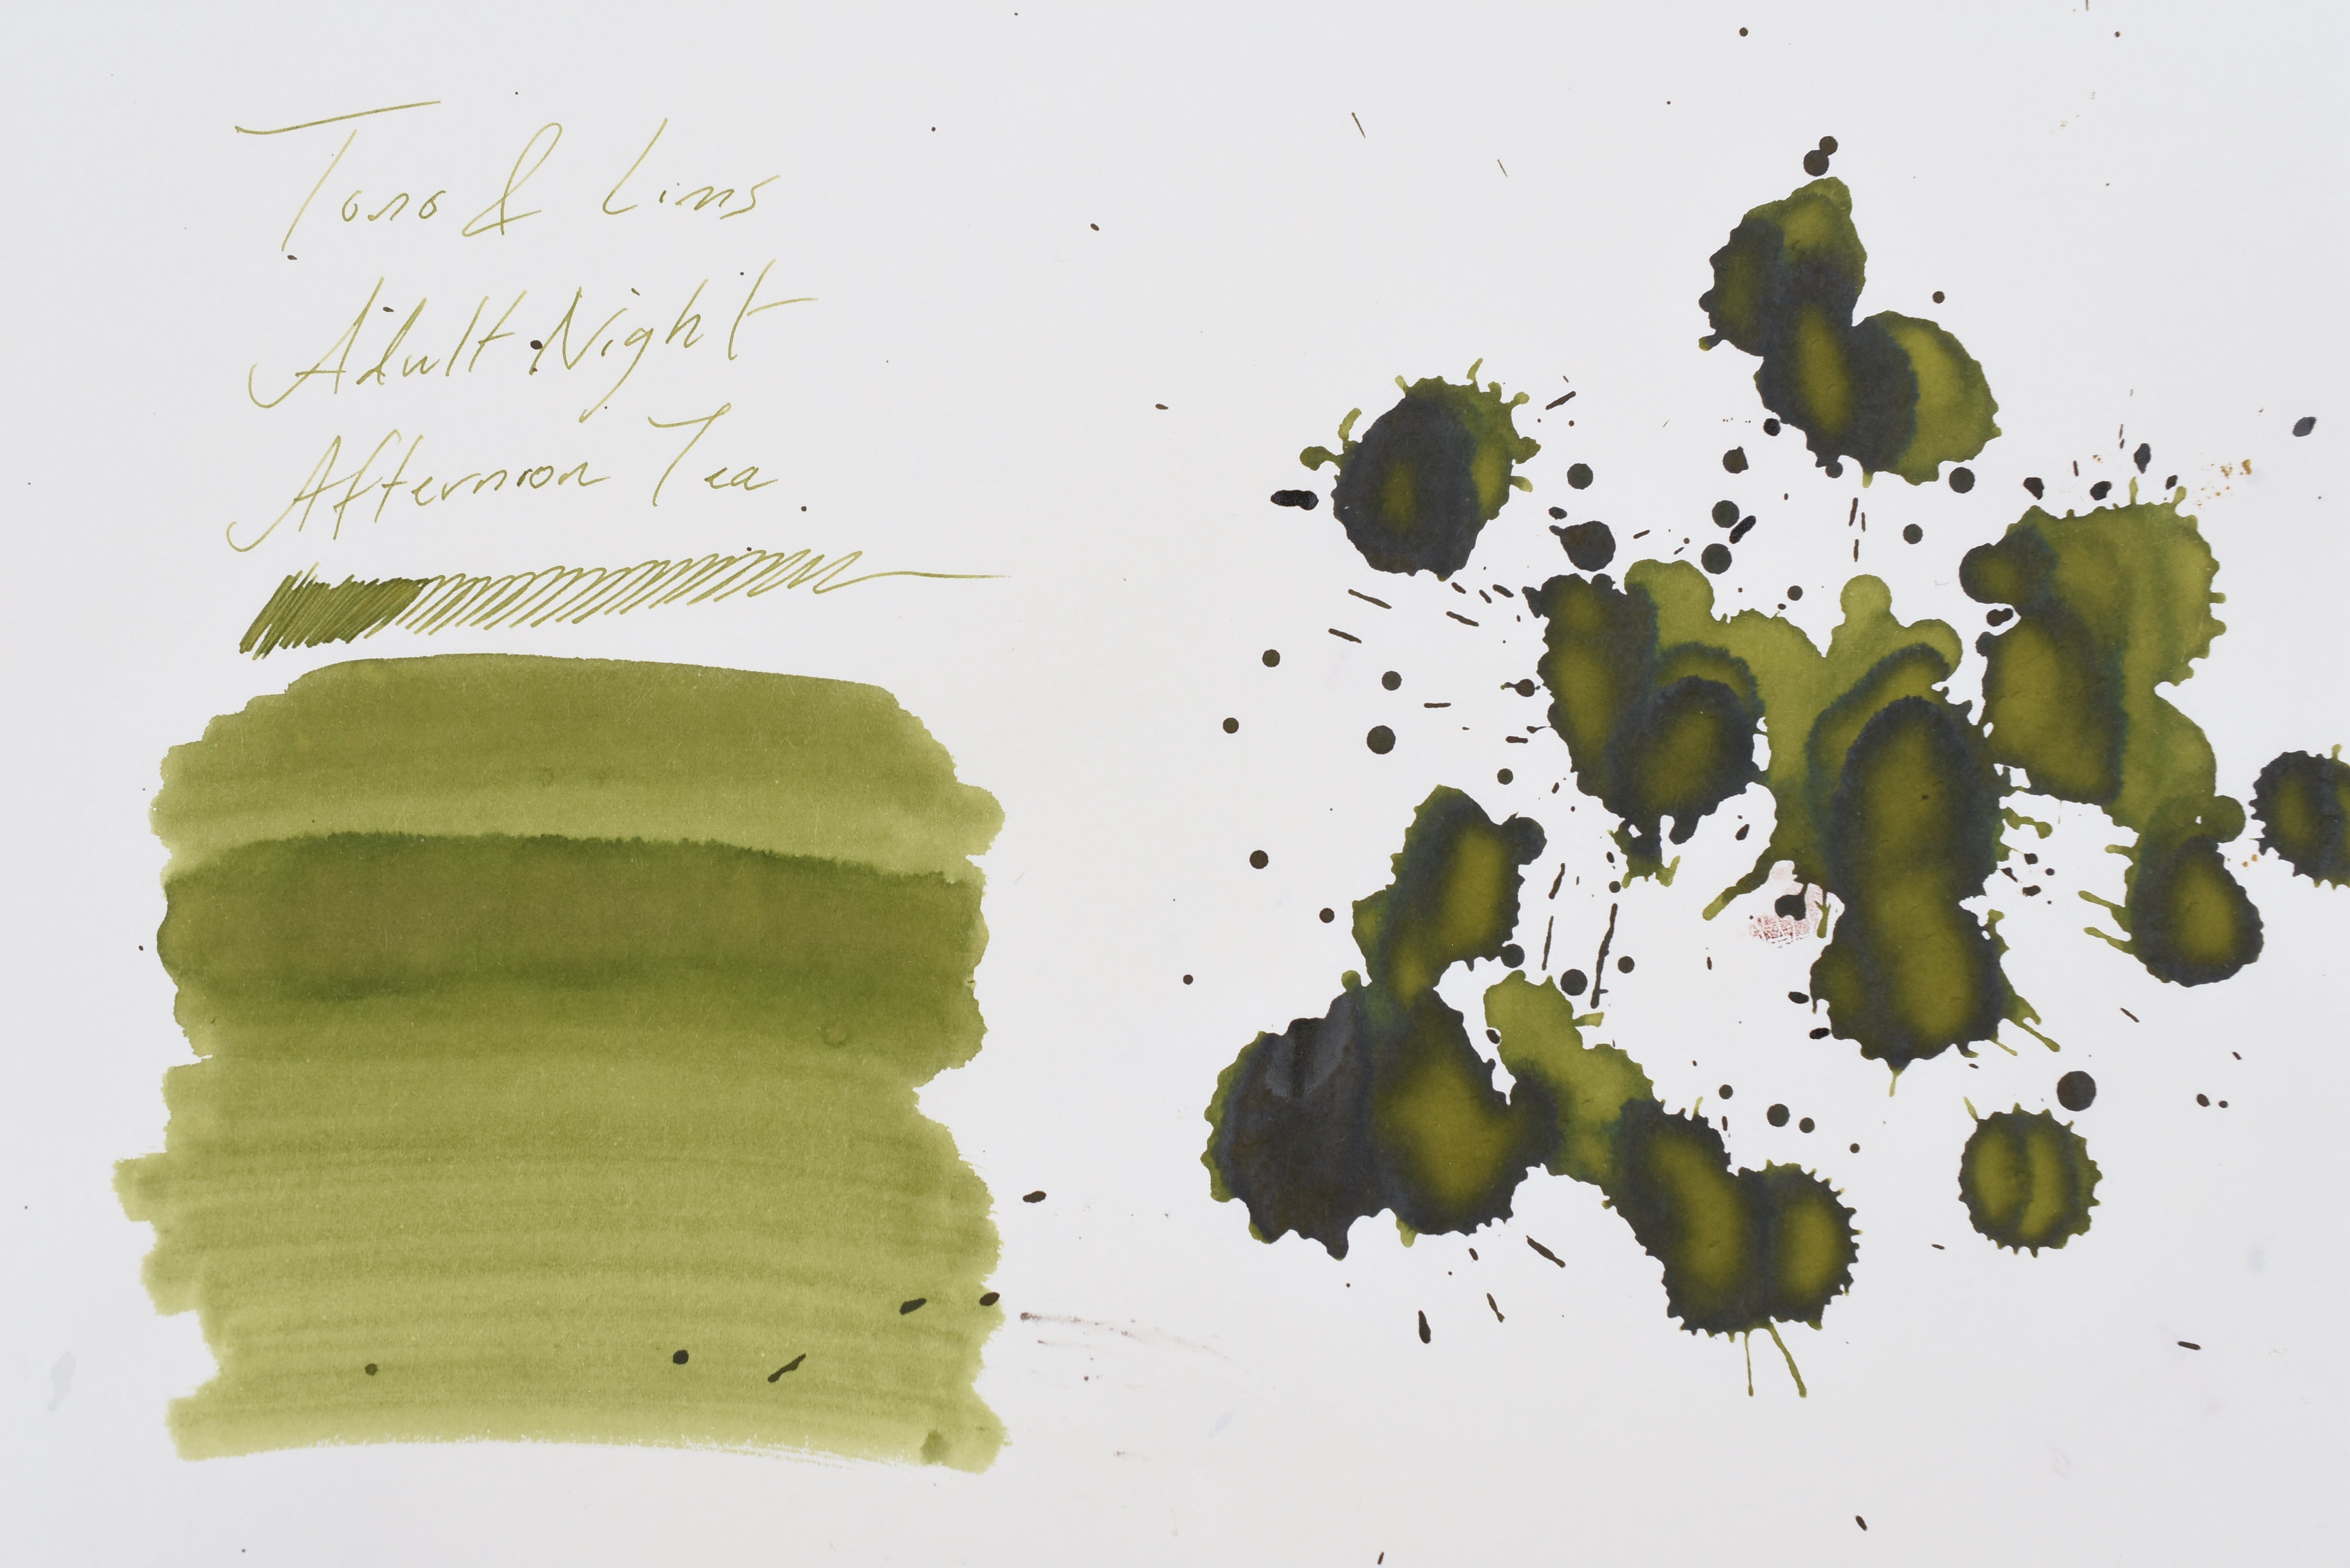 Tono & Lims
Adult Night
Afternoon Tea